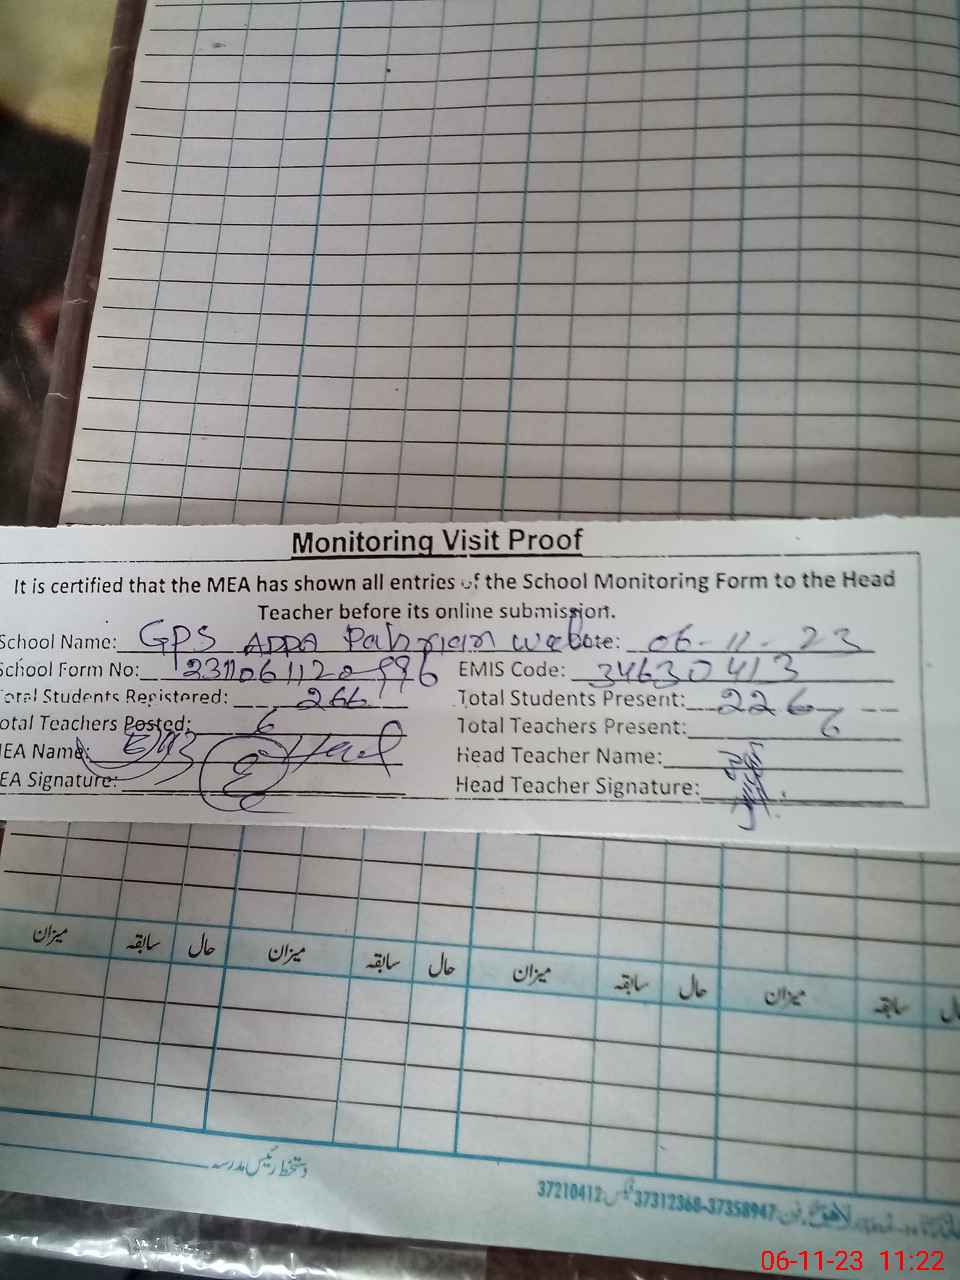 Monitoring Visit Proof
It is certified that the MEA has shown all entries of the School Monitoring Form to the Head
Teacher before its online submission.
School Name: GPS ADDA Pahrian Date: 06-11-23
School Form No: EMIS Code: 34630413
Total Students Registered: 266 Total Students Present: 226
Total Teachers Posted: 6 Total Teachers Present: 6
MEA Name: Head Teacher Name:
EA Signature: Head Teacher Signature:
میزان سابقہ حال میزان سابقہ حال میزان سابقہ حال میزان سابقہ
دستخط رئیس مدرسہ
37210412 37312368-37358947
06-11-23 11:22